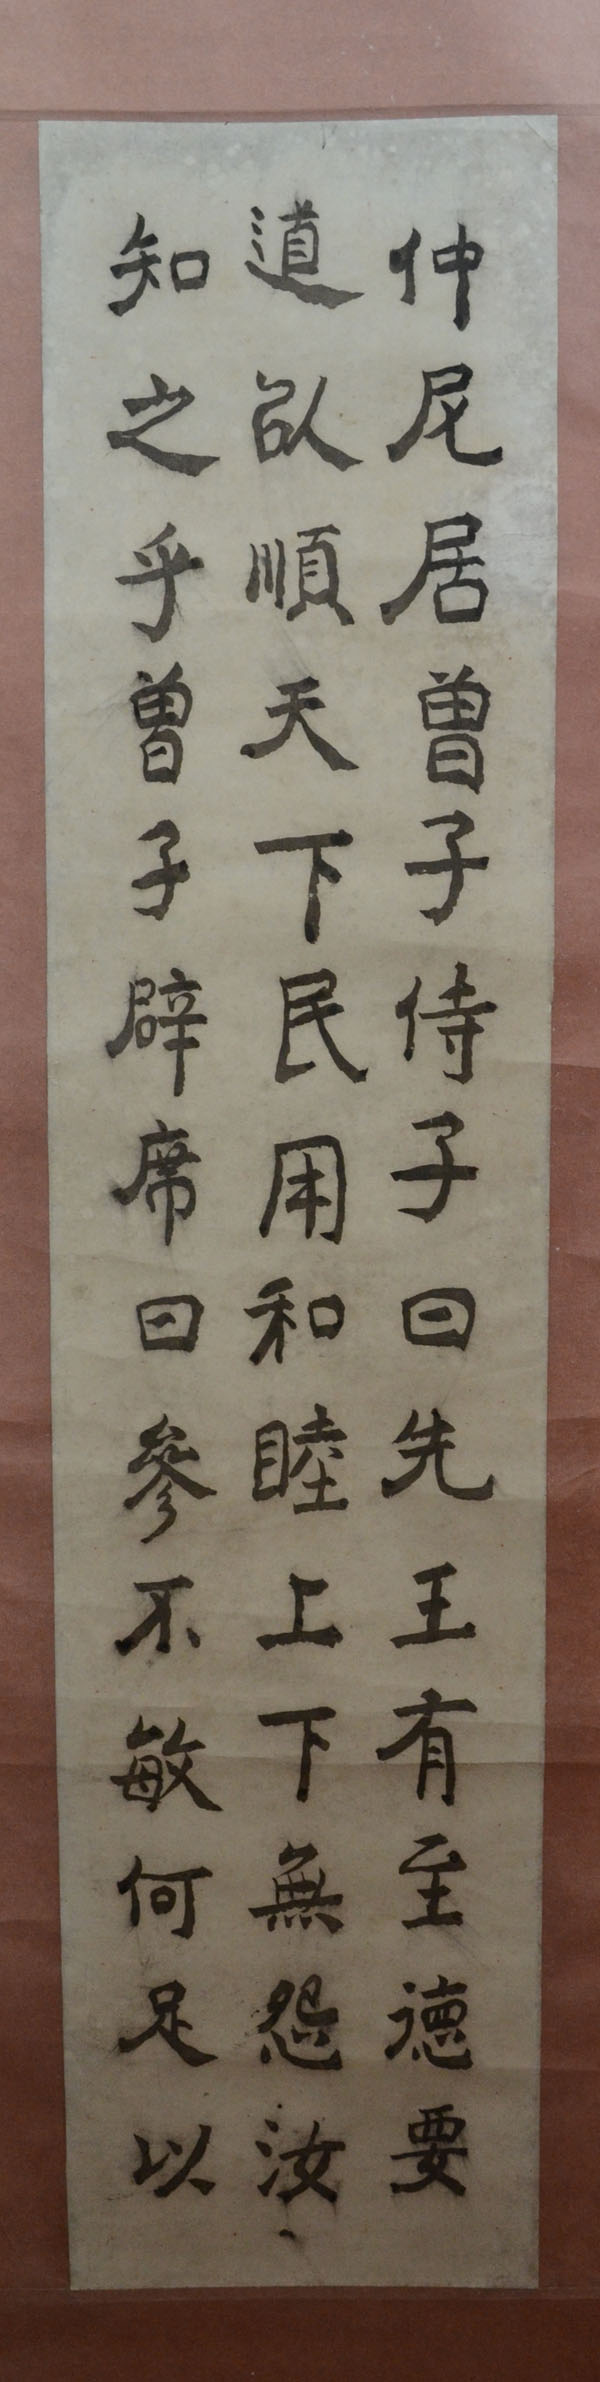 仲尼居曾子侍子曰先王有至德要
道以順天下民用和睦上下無怨汝
知之乎曾子辟席曰參不敏何足以